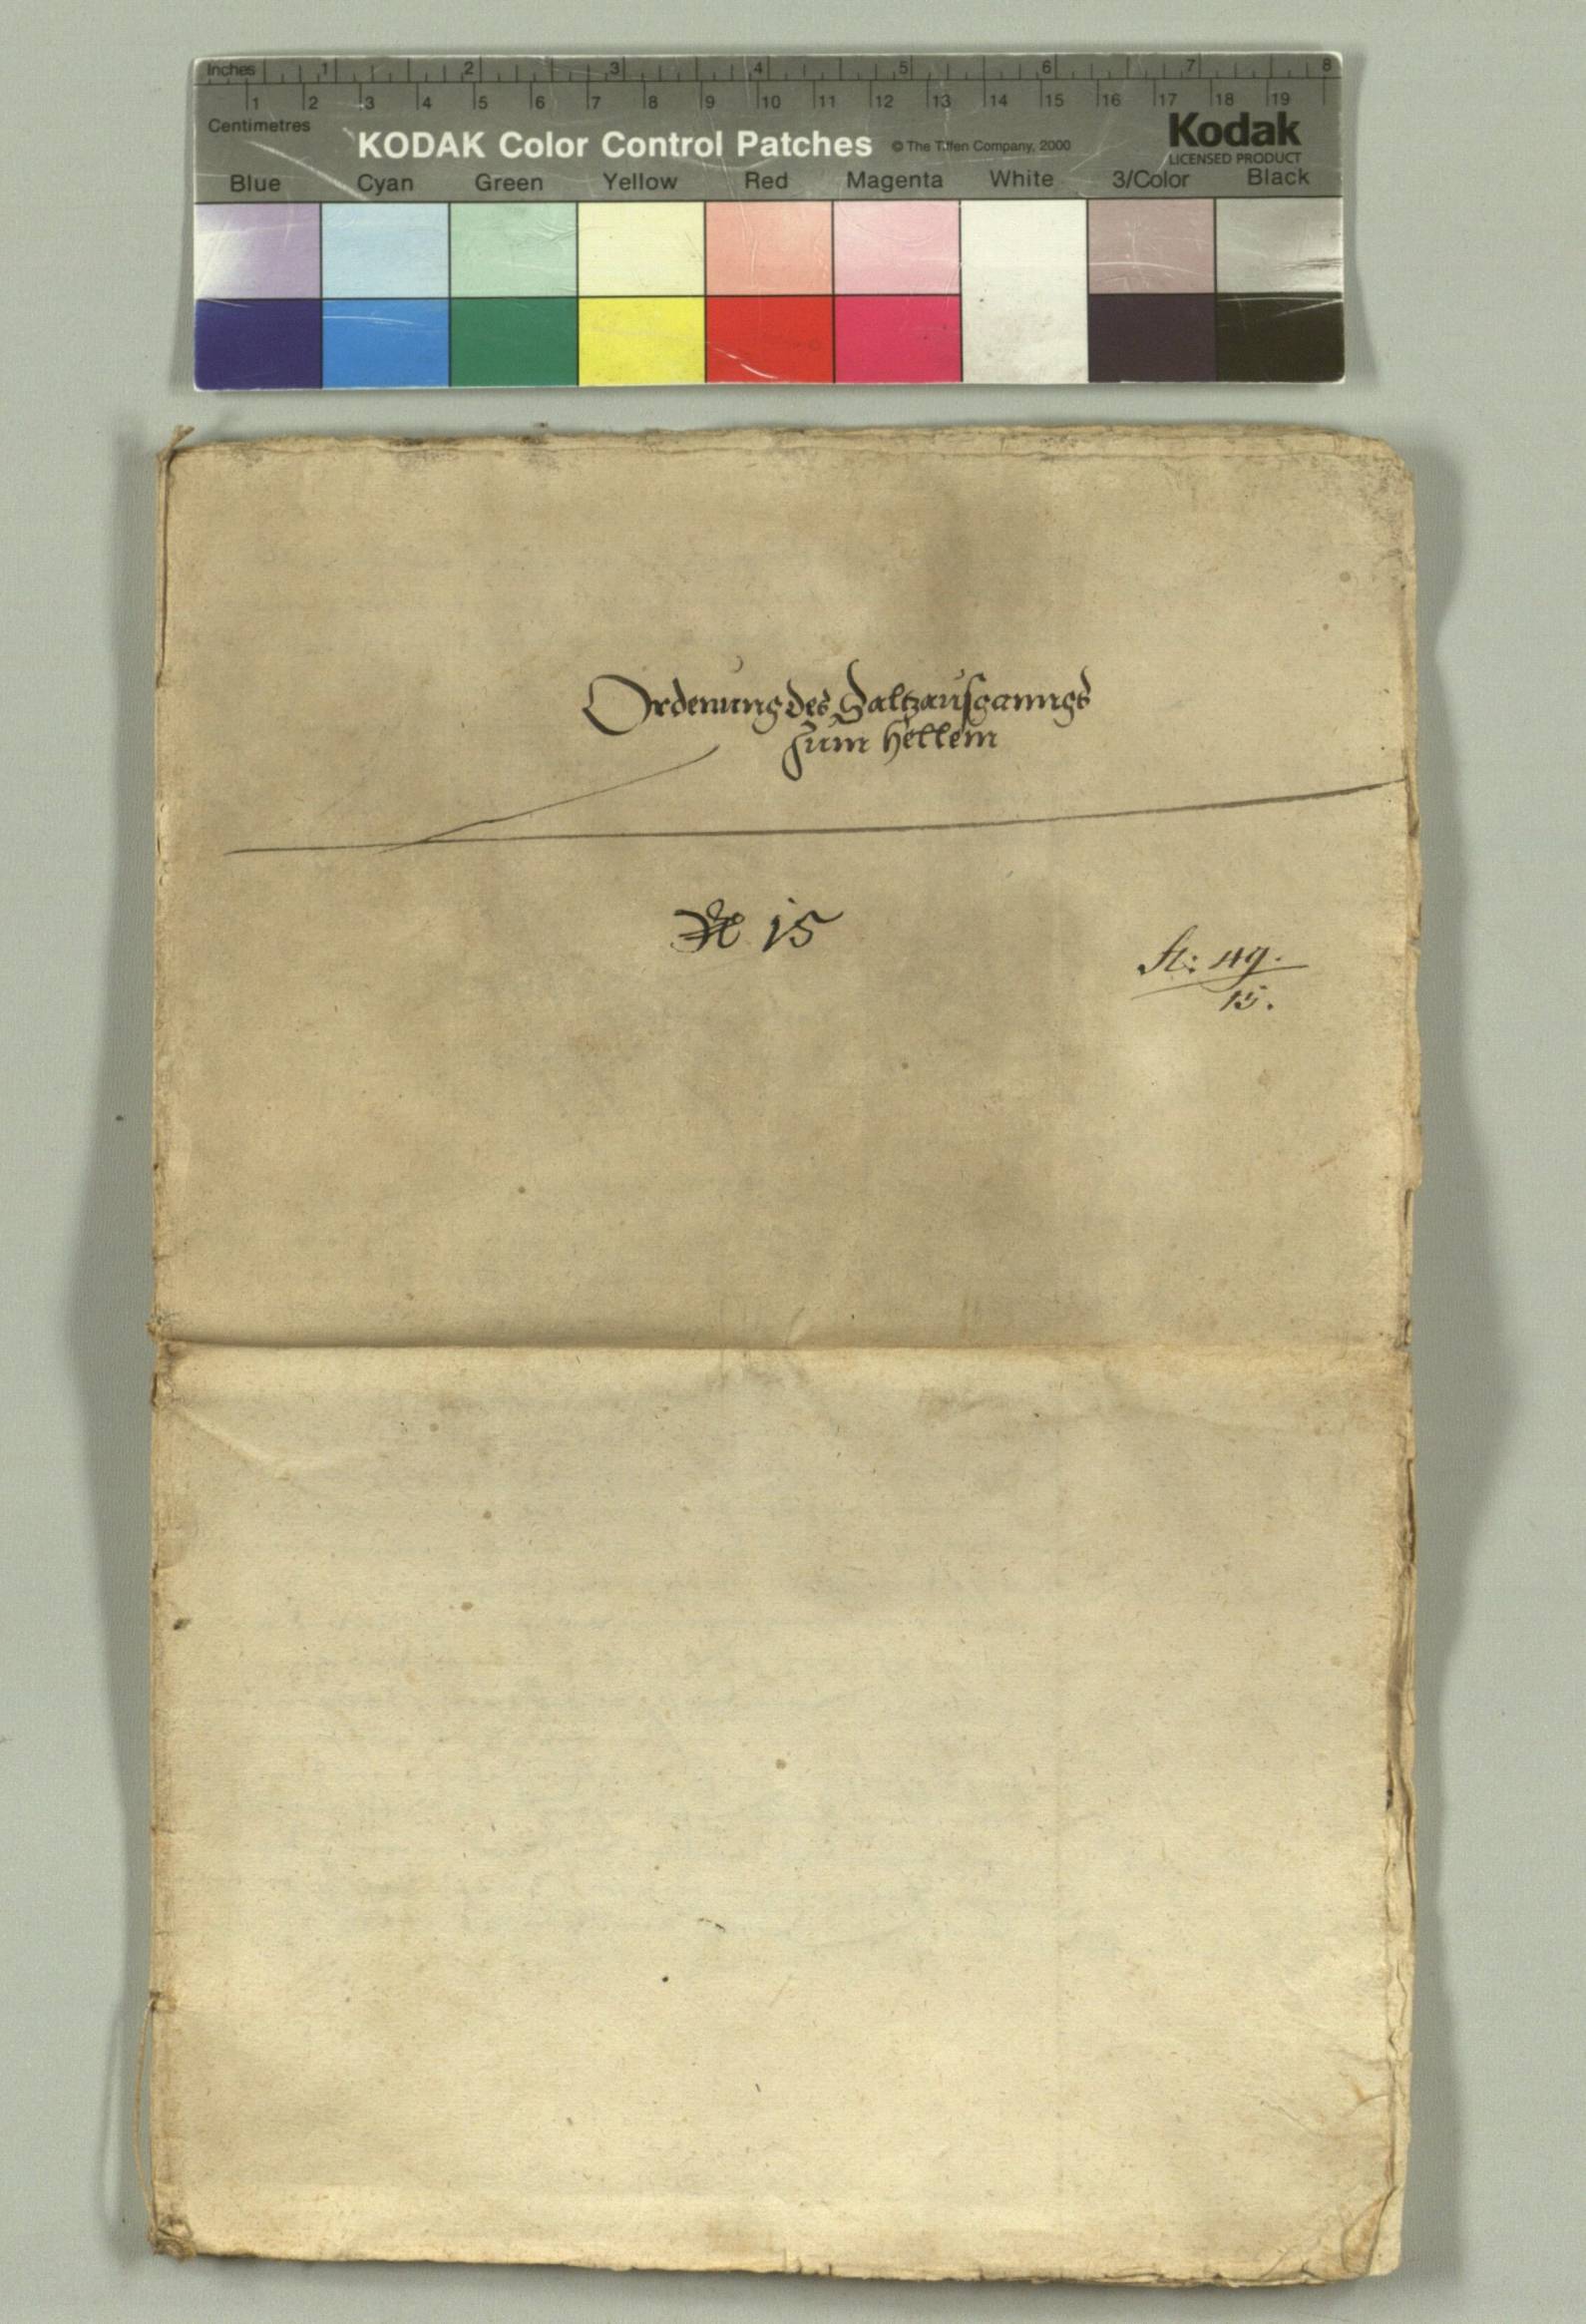 Inches 1 2 3 4 5 6 7 8
1 2 3 4 5 6 7 8 9 10 11 12 13 14 15 16 17 18 19
Centimetres
KODAK Color Control Patches © The Tiffen Company, 2000 Kodak
LICENSED PRODUCT
Blue Cyan Green Yellow Red Magenta White 3/Color Black
Ordenung des Saltzausganngs
zum Hellein
15
49.
15.